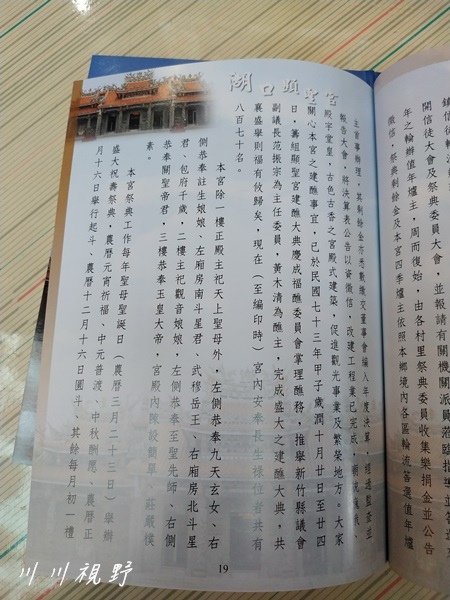 鎮信徒
開信徒大會及祭典委員大會，並報請有關機關派員蒞臨指導並答
年之輪辦值年爐主，周而復始，由各村里祭典委員收集樂捐金並公告
徵信，祭典剩餘金及本宮四季爐主依照本鄉境內各區輪流答選值年爐
湖口顯聖宮
主首事辦理，其剩餘亦悉數繳交董事會編入年度決算，經過監查並
報告大會，將決算表公告以資徵信，改建工程業已完成，
殿宇堂皇，古色古香之宮殿式建築，促進觀光事業及繁榮地方。大家
關心本宮之建醮事宜，已於民國七十三年甲子歲潤十月廿日至廿四
日，籌組顯聖宮建醮大典慶成福醮委員會掌理醮務，推舉新竹縣議會
副議長范振宗為主任委員，黃木清為醮主，完成盛大之建醮大典，共
襄盛舉則福有攸歸矣，現在（至編印時）宮內安奉長生祿位者共有
八百七十名。
本宮除一樓正殿主祀天上聖母外，左側恭奉九天玄女、右
側恭奉註生娘娘、左廂房南斗星君、武穆岳王、右廂房北斗星
君、包府千歲，二樓主祀觀音娘娘，左側恭奉至聖先師、右側
恭奉關聖帝君，三樓恭奉玉皇大帝，宮殿內陳設簡單，莊嚴樸
素。
本宮祭典工作每年聖母聖誕日（農曆三月二十三日）舉辦
盛大祝壽祭典，農曆元宵祈福、中元普渡、中秋酬愿、農曆正
月十六日舉行起斗、農曆十二月十六日圓斗、其餘每月初一禮
19
川川視野